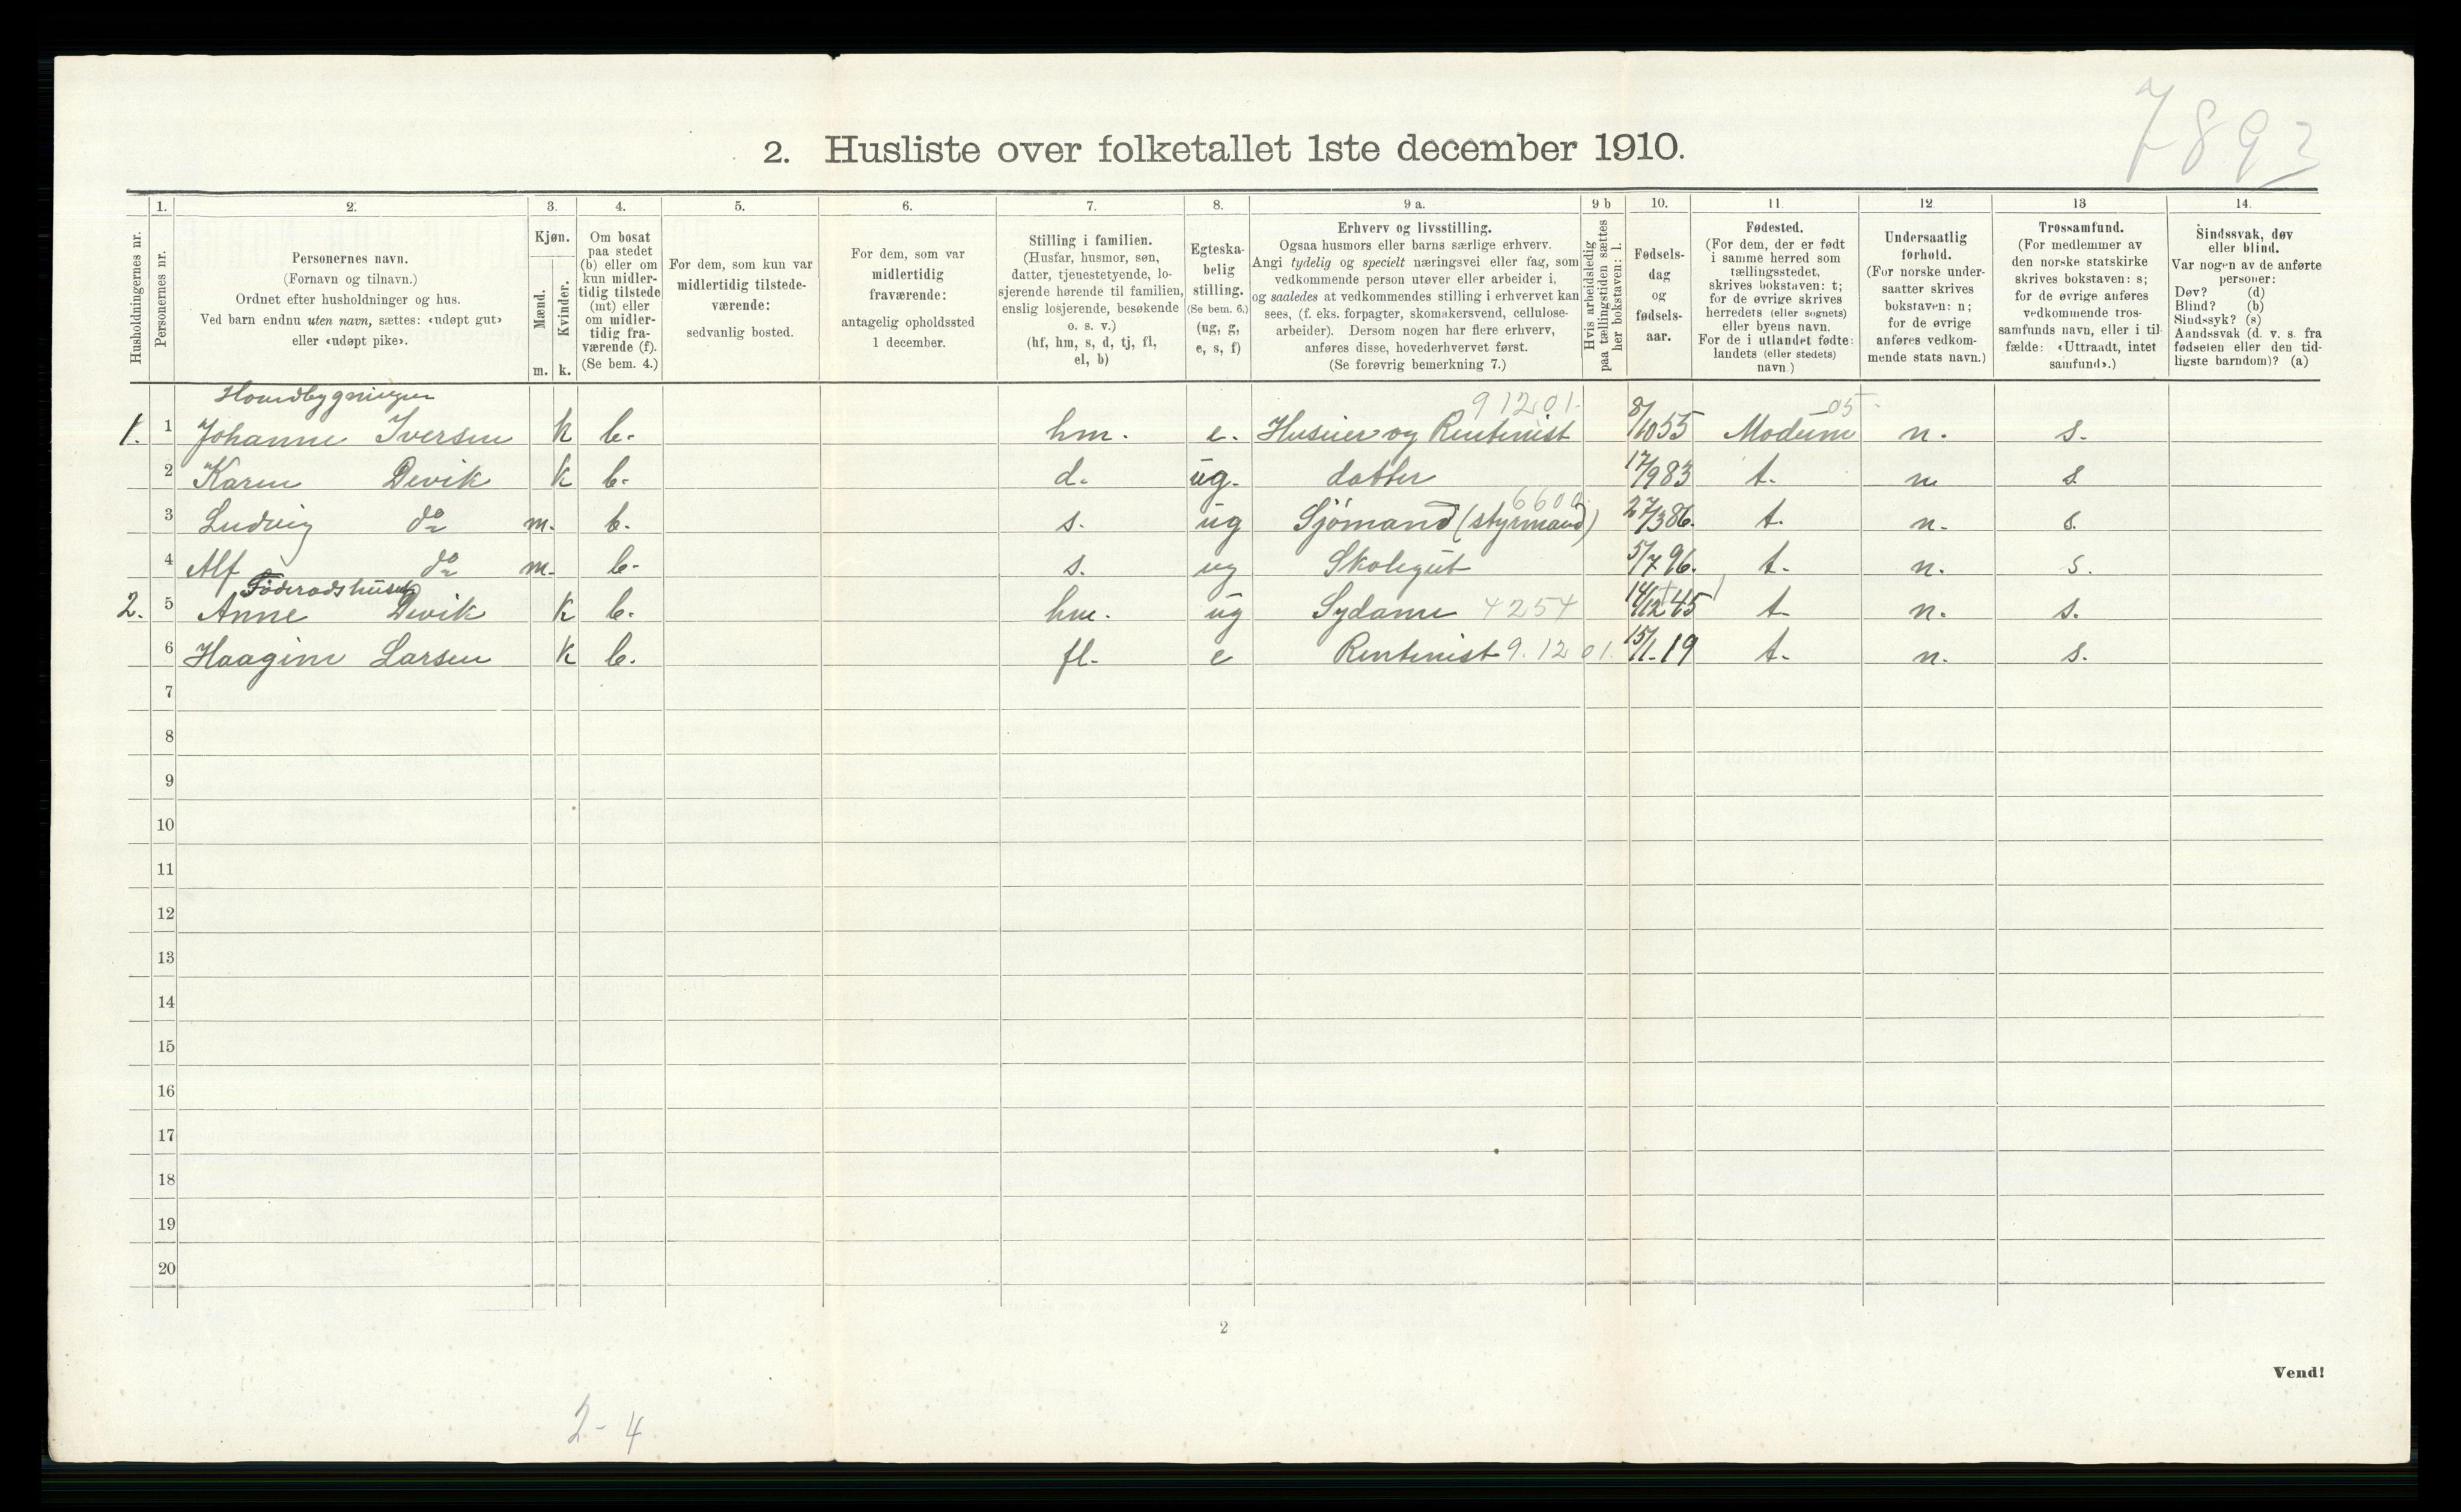 7892
2. Husliste over folketallet 1ste december 1910.
Husholdningernes nr.
1. Personernes nr.
2. Personernes navn. (Fornavn og tilnavn.) Ordnet efter husholdninger og hus. Ved barn endnu uten navn, sættes: «udøpt gut» eller «udøpt pike».
3. Kjøn. Mænd. m. Kvinder. k.
4. Om bosat paa stedet (b) eller om kun midlertidig tilstede (mt) eller om midlertidig fraværende (f). (Se bem. 4.)
5. For dem, som kun var midlertidig tilstedeværende: sedvanlig bosted.
6. For dem, som var midlertidig fraværende: antagelig opholdssted 1 december.
7. Stilling i familien. (Husfar, husmor, søn, datter, tjenestetyende, losjerende hørende til familien, enslig losjerende, besøkende o. s. v.) (hf, hm, s, d, tj, fl, el, b)
8. Egteskabelig stilling. (Se bem. 6.) (ug, g, e, s, f)
9 a. Erhverv og livsstilling. Ogsaa husmors eller barns særlige erhverv. Angi tydelig og specielt næringsvei eller fag, som vedkommende person utøver eller arbeider i, og saaledes at vedkommendes stilling i erhvervet kan sees, (f. eks. forpagter, skomakersvend, cellulosearbeider). Dersom nogen har flere erhverv, anføres disse, hovederhvervet først. (Se forøvrig bemerkning 7.)
9 b Hvis arbeidsledig paa tællingstiden sættes her bokstaven: l.
10. Fødselsdag og fødselsaar.
11. Fødested. (For dem, der er født i samme herred som tællingsstedet, skrives bokstaven: t; for de øvrige skrives herredets (eller sognets) eller byens navn. For de i utlandet fødte: landets (eller stedets) navn.)
12. Undersaatlig forhold. (For norske undersaatter skrives bokstaven: n; for de øvrige anføres vedkommende stats navn.)
13 Trossamfund. (For medlemmer av den norske statskirke skrives bokstaven: s; for de øvrige anføres vedkommende trossamfunds navn, eller i tilfælde: «Uttraadt, intet samfund».)
14. Sindssvak, døv eller blind. Var nogen av de anførte personer: Døv? (d) Blind? (b) Sindssyk? (s) Aandssvak (d. v. s. fra fødselen eller den tidligste barndom)? (a)
Hovedbygningen 9 12 01. -05-
1. 1 Johanne Iversen k b. hm. e. Huseier og Rentenist 8/10 55 Modum n. s.
2 Karen Devik k b. d. ug. datter 17/9 83 t. n s
3 Ludvig do m. b. s. ug Sjömand (styrmand) 6600 27/3 86. t. n. s.
4 Alf do m. b. s. ug Skolegut 5/7 96. t. n. s.
Föderaadshuset
2. 5 Anne Devik k b. hm. ug Sydame 4254 14/12 45 t. n. s.
6 Haagine Larsen k b. fl. e Rentenist 9. 12 01. 15/1. 19 t. n. s.
7
8
9
10
11
12
13
14
15
16
17
18
19
20
2
Vend!
2-4